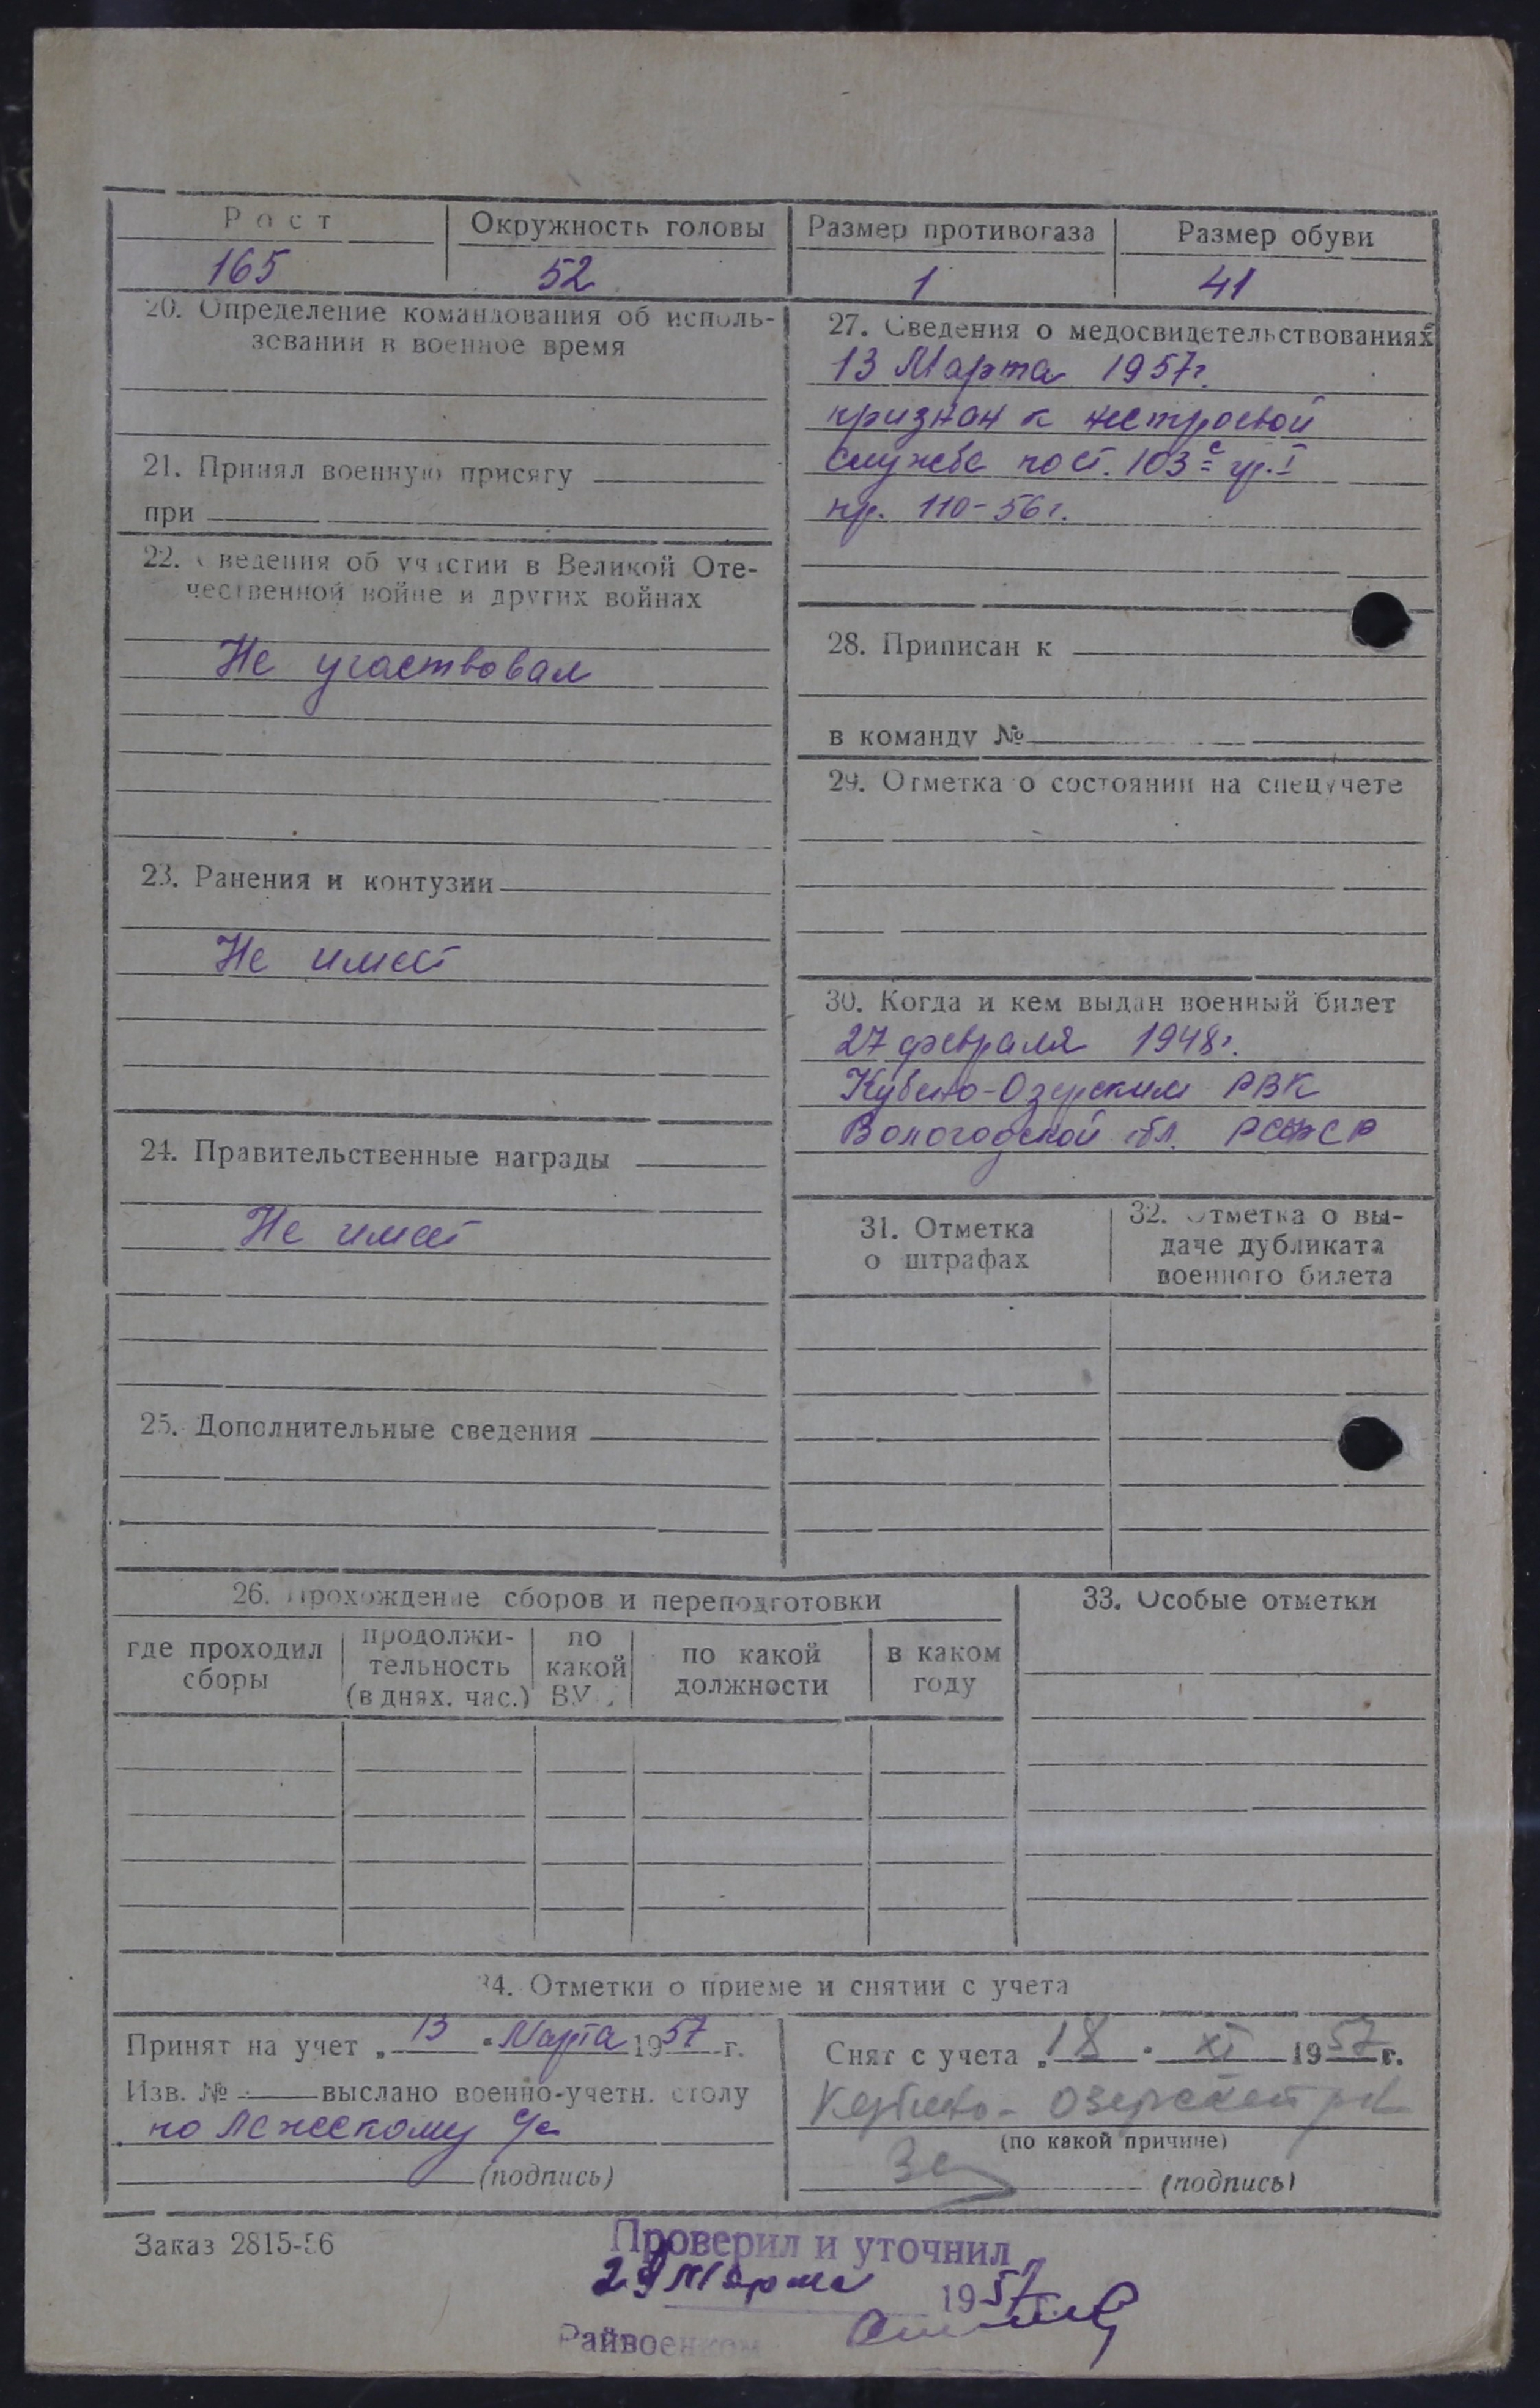 Рост
Окружность головы
Размер противогаза
Размер обуви
165
52
1
41
20. Определение командования об исполь-
зовании в военное время
21. Принял военную присягу
при
22. Сведения об участии в Великой Оте-
чественной войне и других войнах
Не участвовал
23. Ранения и контузии
Не имеет
24. Правительственные награды
Не имеет
25. Дополнительные сведения
27. Сведения о медосвидетельствованиях
13 Марта 1957г.
признан к нестроевой
службе пост. 103с гр. I
пр. 110-56г.
28. Приписан к
в команду №
29. Отметка о состоянии на спецучете
30. Когда и кем выдан военный билет
27 февраля 1948г.
Кубено-Озерским РВК
Вологодской обл. РСФСР
31. Отметка
о штрафах
32. Отметка о вы-
даче дубликата
военного билета
26. Прохождение сборов и переподготовки
где проходил
сборы
продолжи-
тельность
(в днях. час.)
по
какой
ВУС
по какой
должности
в каком
году
33. Особые отметки
34. Отметки о приеме и снятии с учета
Принят на учет „13" Марта 1957 г.
Изв. № — выслано военно-учетн. столу
по с/с
(подпись)
Снят с учета „18" XI 1957 г.
Кубено-Озерский
(по какой причине)
(подпись)
Заказ 2815-56
Проверил и уточнил
29 Марта 1957
Райвоенком